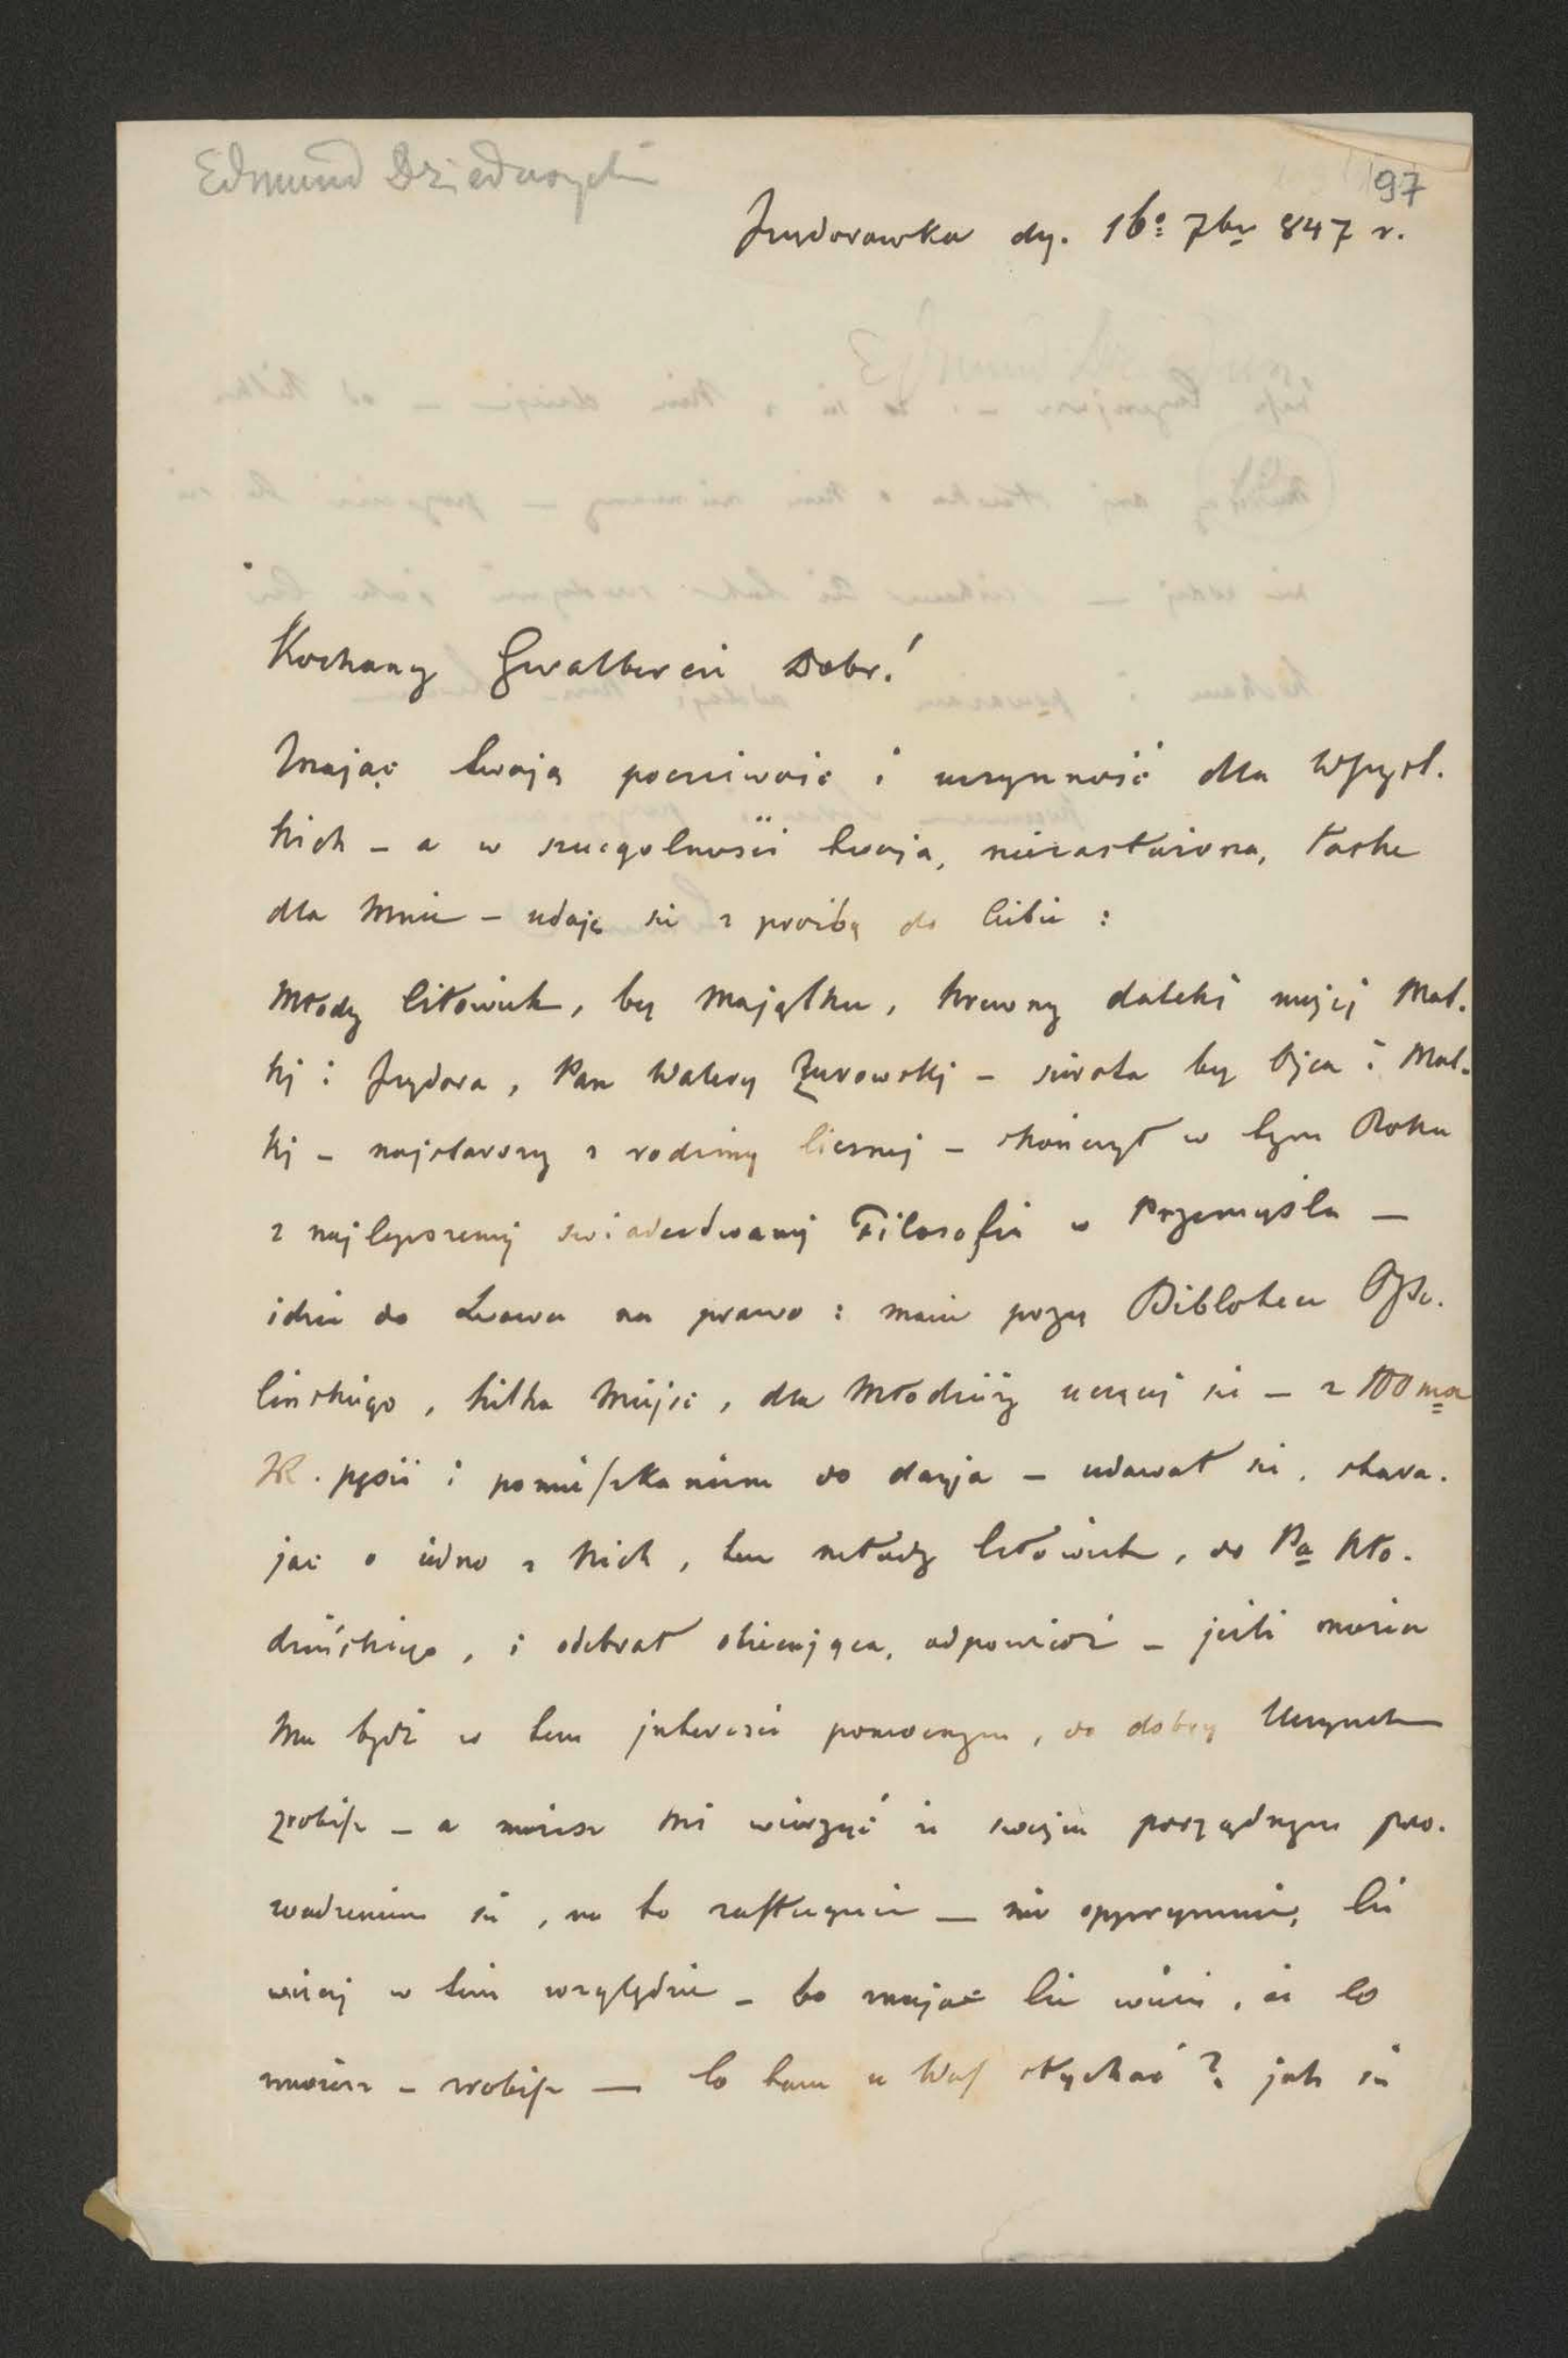 Edmund Dzieduszycki
97
Jzydorowka dy. 16º 7br 847 r.
Kochany Gwalbercie Dobr!
Znając twoją poczciwość i uczynność dla Wszyst.
kich – a w szczegolności twoją, niezasłużoną, łaskę
dla Mnie – udaję się z prośbą do Ciebie :
Młody Człowiek, bez Majątku, krewny daleki mojej Mat.
kj i Jzydora, Pan Walery Żurowskj – sierota bez Ojca i Mat.
kj – najstarszy z rodziny licznej – skończył w tym Roku
z najlepszemj swiadectwamj Filozofią w Przemyślu –
idzie do Lwowa na prawo : macie przy Bibliotece Oss.
linskiego, kilka Miejsc, dla Młodzieży uczącej się – z 100ma
ZR. pęsii i pomieszkaniem do dania – udawał się, stara.
jąc o jedno z Nich, ten młody Człowiek, do Pa Kło.
dzińskiego, i odebrał obiecującą, odpowiedź – jeśli możesz
Mu bydź w tem jnteresie pomocnym, to dobry Uczynek
zrobisz – a możesz Mi wierzyć że swojem porządnym pro.
wadzeniem się, na to zasługuie — nie opprymuię, Cie
więcej w tem względzie – bo znając Cie wiem, że co
możesz – zrobisz — Co tam u Was słychać? jak się